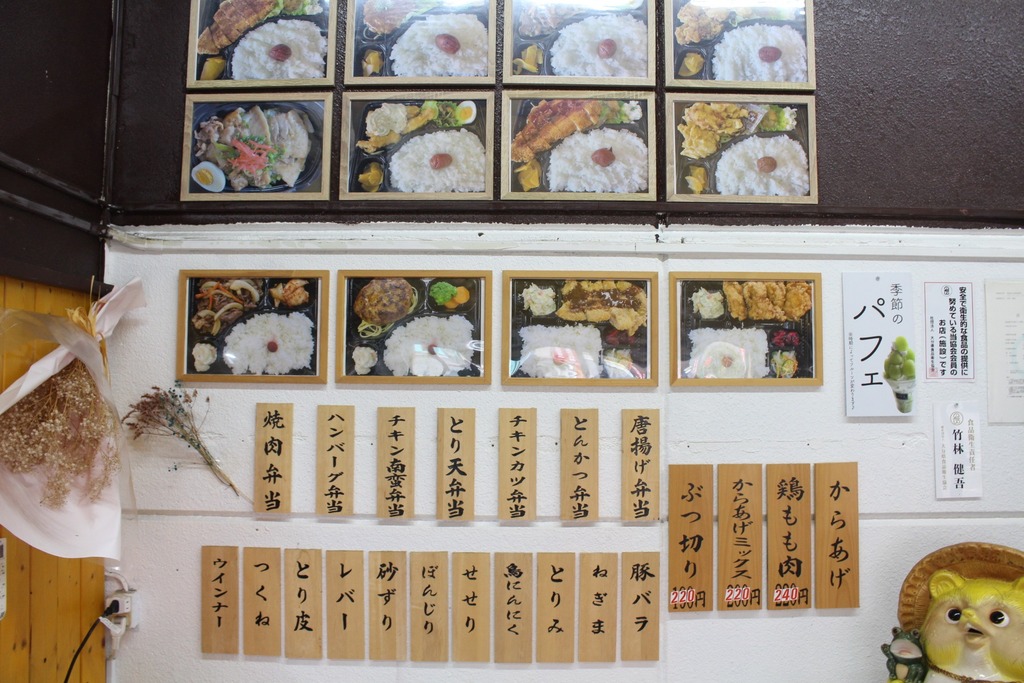 季節の
パフェ
安全で衛生的な食品の提供に
努めている当協会会員の
お店(施設)です
食品衛生責任者
竹林 健吾
唐揚げ弁当
とんかつ弁当
チキンカツ弁当
とり天弁当
チキン南蛮弁当
ハンバーグ弁当
焼肉弁当
からあげ
鶏もも肉
240円
からあげミックス
220円
ぶつ切り
220円
豚バラ
ねぎま
とりみ
鳥にんにく
せせり
ぼんじり
砂ずり
レバー
とり皮
つくね
ウインナー